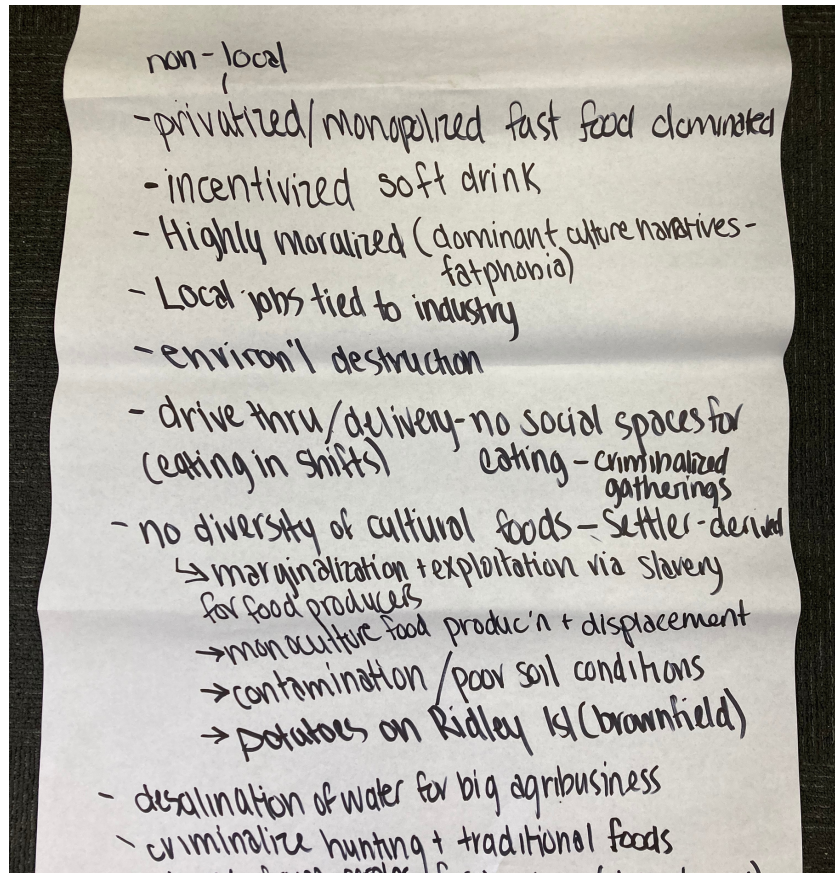 non-local
-privatized/monopolized fast food dominated
-incentivized soft drink
- Highly moralized (dominant culture narratives-
fatphobia)
- Local jobs tied to industry
-environ'l destruction
- drive thru/delivery-no social spaces for
(eating in shifts) eating - criminalized
gatherings
- no diversity of cultural foods - Settler-derived
↳ marginalization + exploitation via slavery
for food producers
→monoculture food produc'n + displacement
→contamination/poor soil conditions
→ potatoes on Ridley Isl (brownfield)
- desalination of water for big agribusiness
- criminalize hunting + traditional foods